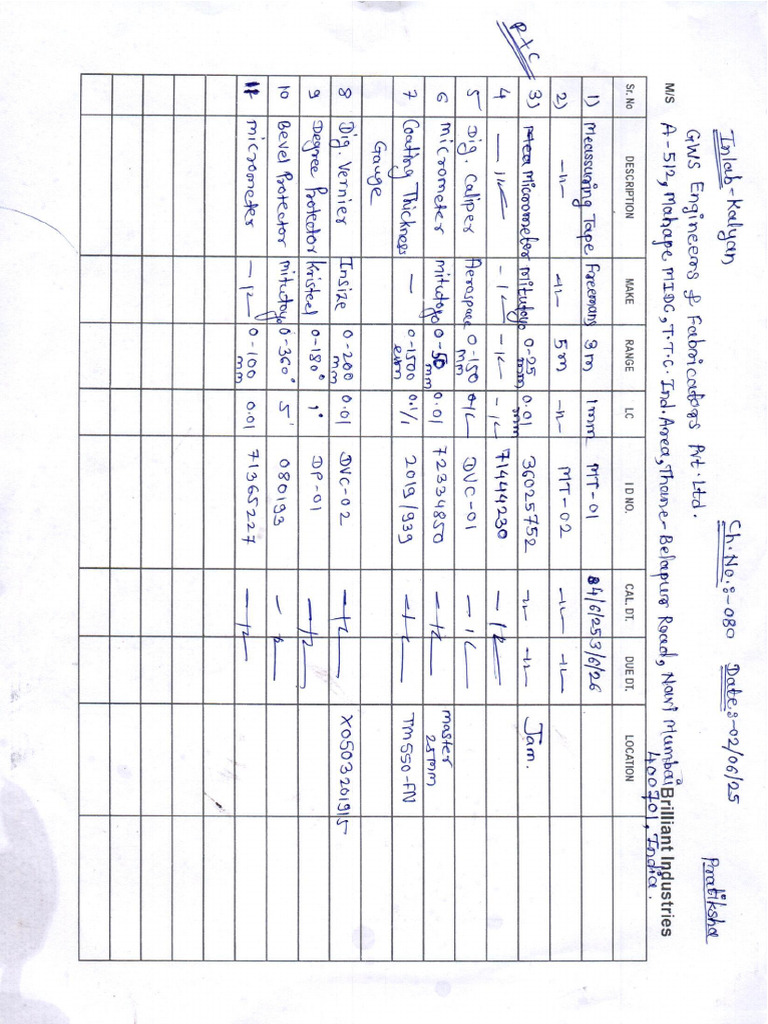 Inlab-Kalyan Ch.No.:-080 Date:-02/06/25 Pratiksha
GWS Engineers & Fabricators Pvt. Ltd.
M/S A-512, Mahape, MIDC, T.T.C. Ind. Area, Thane-Belapur Road, Navi Mumbai Brilliant Industries
400701, India.
Sr. No DESCRIPTION MAKE RANGE LC ID NO. CAL. DT. DUE DT. LOCATION
1) Meassuring Tape Freemans 3m 1mm MT-01 4/6/25 3/6/26
2) -〃- -〃- 5m -〃- MT-02 -〃- -〃-
3) Micrometer mitutoyo 0-25 mm 0.01 mm 36025752 -〃- -〃- Jam.
4 -〃- -〃- -〃- -〃- 71444230 -〃-
5 Dig. Caliper Aerospace 0-150 mm -〃- DVC-01 -〃-
6 micrometer mitutoyo 0-50 mm 0.01 72334850 -〃- master 25mm
7 Coating Thickness - 0-1500 0.1% 2019/939 -〃- TM550-FN
Gauge
8 Dig. Vernier Insize 0-200 mm 0.01 DVC-02 -〃- X0503201915
9 Degree Protector Kristeel 0-180° 1° DP-01 -〃-
10 Bevel Protector mitutoyo 0-360° 5' 080193 -〃-
11 micrometer -〃- 0-100 mm 0.01 71365227 -〃-
P+C